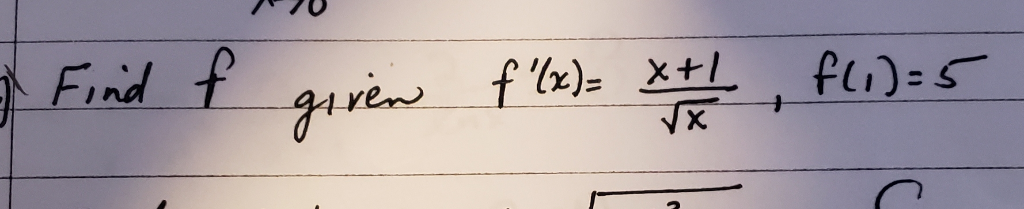 Find f given f'(x) = \frac{x+1}{\sqrt{x}}, f(1) = 5